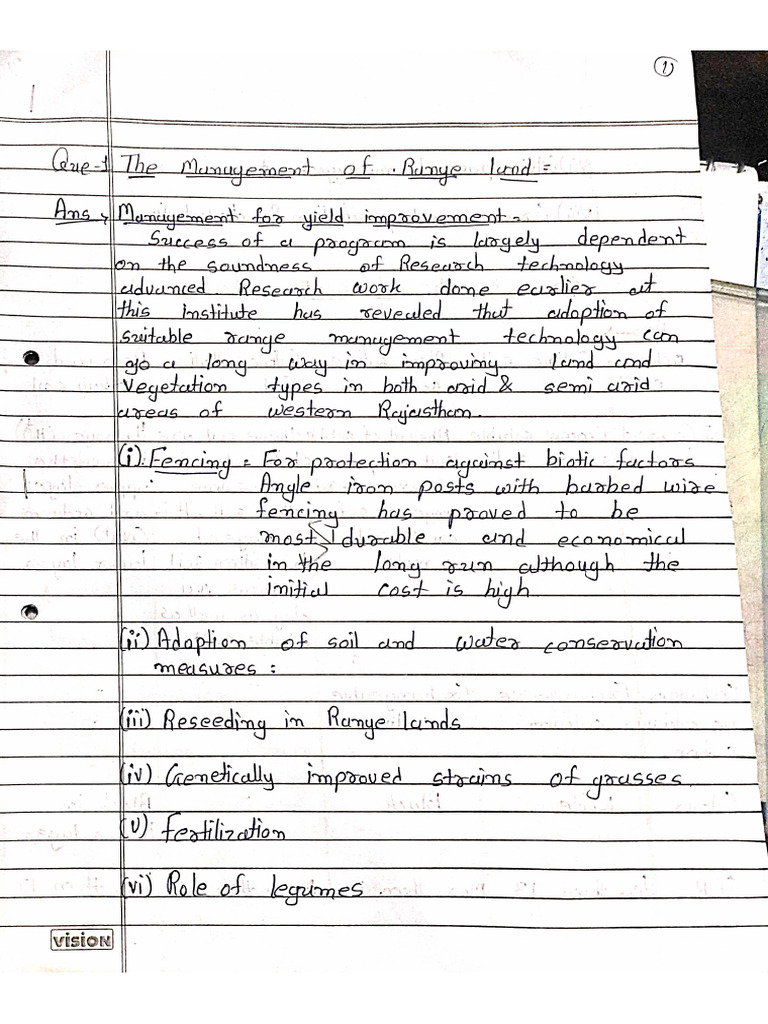 1
Que-1 The Management of Range land =
Ans, Management for yield improvement -
Success of a program is largely dependent
on the soundness of Research technology
advanced. Research work done earlier at
this institute has revealed that adoption of
suitable range management technology can
go a long way in improving land and
vegetation types in both arid & semi arid
areas of western Rajasthan.
(i) Fencing = For protection against biotic factors
Angle iron posts with barbed wire
fencing has proved to be
most durable and economical
in the long run although the
initial cost is high
(ii) Adoption of soil and water conservation
measures :
(iii) Reseeding in Range lands
(iv) Genetically improved strains of grasses.
(v) Fertilization
(vi) Role of legumes.
vision